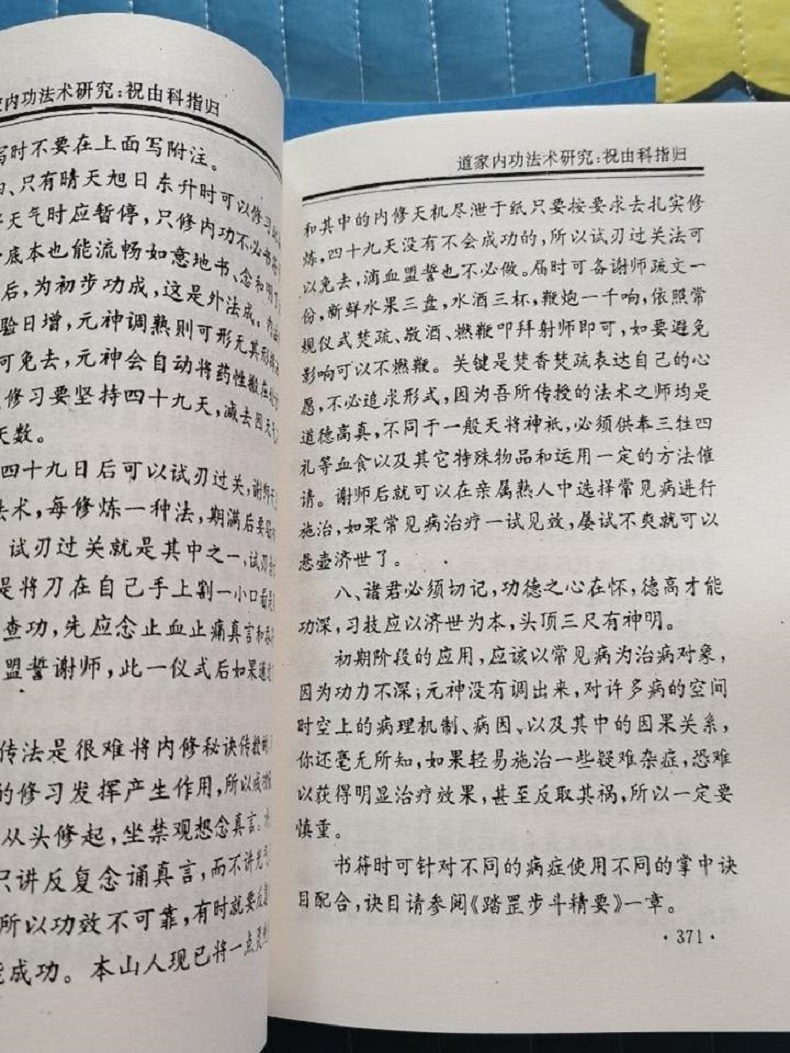 家内功法术研究：祝由科指归
写时不要在上面写附注。
四、只有晴天旭日东升时可以修习
天气时应暂停，只修内功不必书符
底本也能流畅如意地书、念和明
后，为初步功成，这是外法成。内
验日增，元神调熟则可形无其形
可免去，元神会自动将药性搬
修习要坚持四十九天，减去因天气
天数。
四十九日后可以试刃过关，谢师
法术，每修炼一种法，期满后要
试刃过关就是其中之一，试刃
是将刀在自己手上割一小口看是
查功，先应念止血止痛真言和
盟誓谢师，此一仪式后如果通过
传法是很难将内修秘诀传授
的修习发挥产生作用，所以
从头修起，坐禁观想念真言：
只讲反复念诵真言，而不讲
所以功效不可靠，有时就要反
能成功。本山人现已将一点灵
道家内功法术研究：祝由科指归
和其中的内修天机尽泄于纸只要按要求去扎实修
炼，四十九天没有不会成功的，所以试刃过关法可
以免去，滴血盟誓也不必做。届时可备谢师疏文一
份，新鲜水果三盘，水酒三杯，鞭炮一千响，依照常
规仪式焚疏、敬酒、燃鞭叩拜射师即可，如要避免
影响可以不燃鞭。关键是焚香焚疏表达自己的心
愿，不必追求形式，因为吾所传授的法术之师均是
道德高真，不同于一般天将神祇，必须供奉三牲四
礼等血食以及其它特殊物品和运用一定的方法催
请。谢师后就可以在亲属熟人中选择常见病进行
施治，如果常见病治疗一试见效，屡试不爽就可以
悬壶济世了。
八、诸君必须切记，功德之心在怀，德高才能
功深，习技应以济世为本，头顶三尺有神明。
初期阶段的应用，应该以常见病为治病对象，
因为功力不深；元神没有调出来，对许多病的空间
时空上的病理机制、病因、以及其中的因果关系，
你还毫无所知，如果轻易施治一些疑难杂症，恐难
以获得明显治疗效果，甚至反取其祸，所以一定要
慎重。
书符时可针对不同的病症使用不同的掌中诀
目配合，诀目请参阅《踏罡步斗精要》一章。
·371·